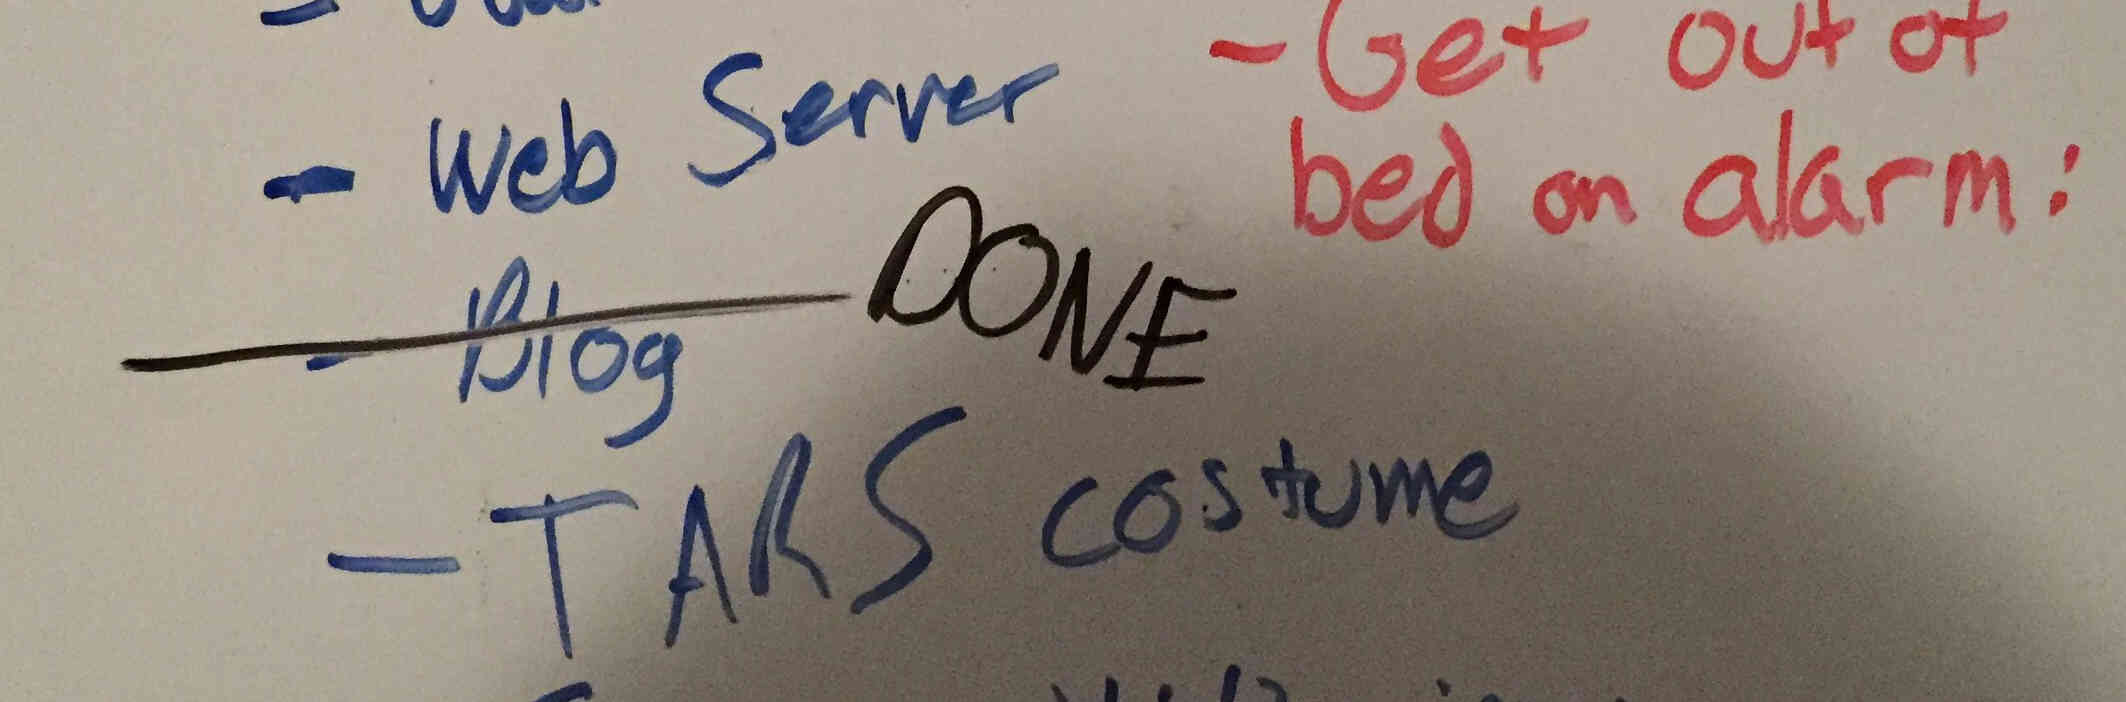 - Web Server
- Blog
DONE
- TARS costume
- Get out of
bed on alarm: